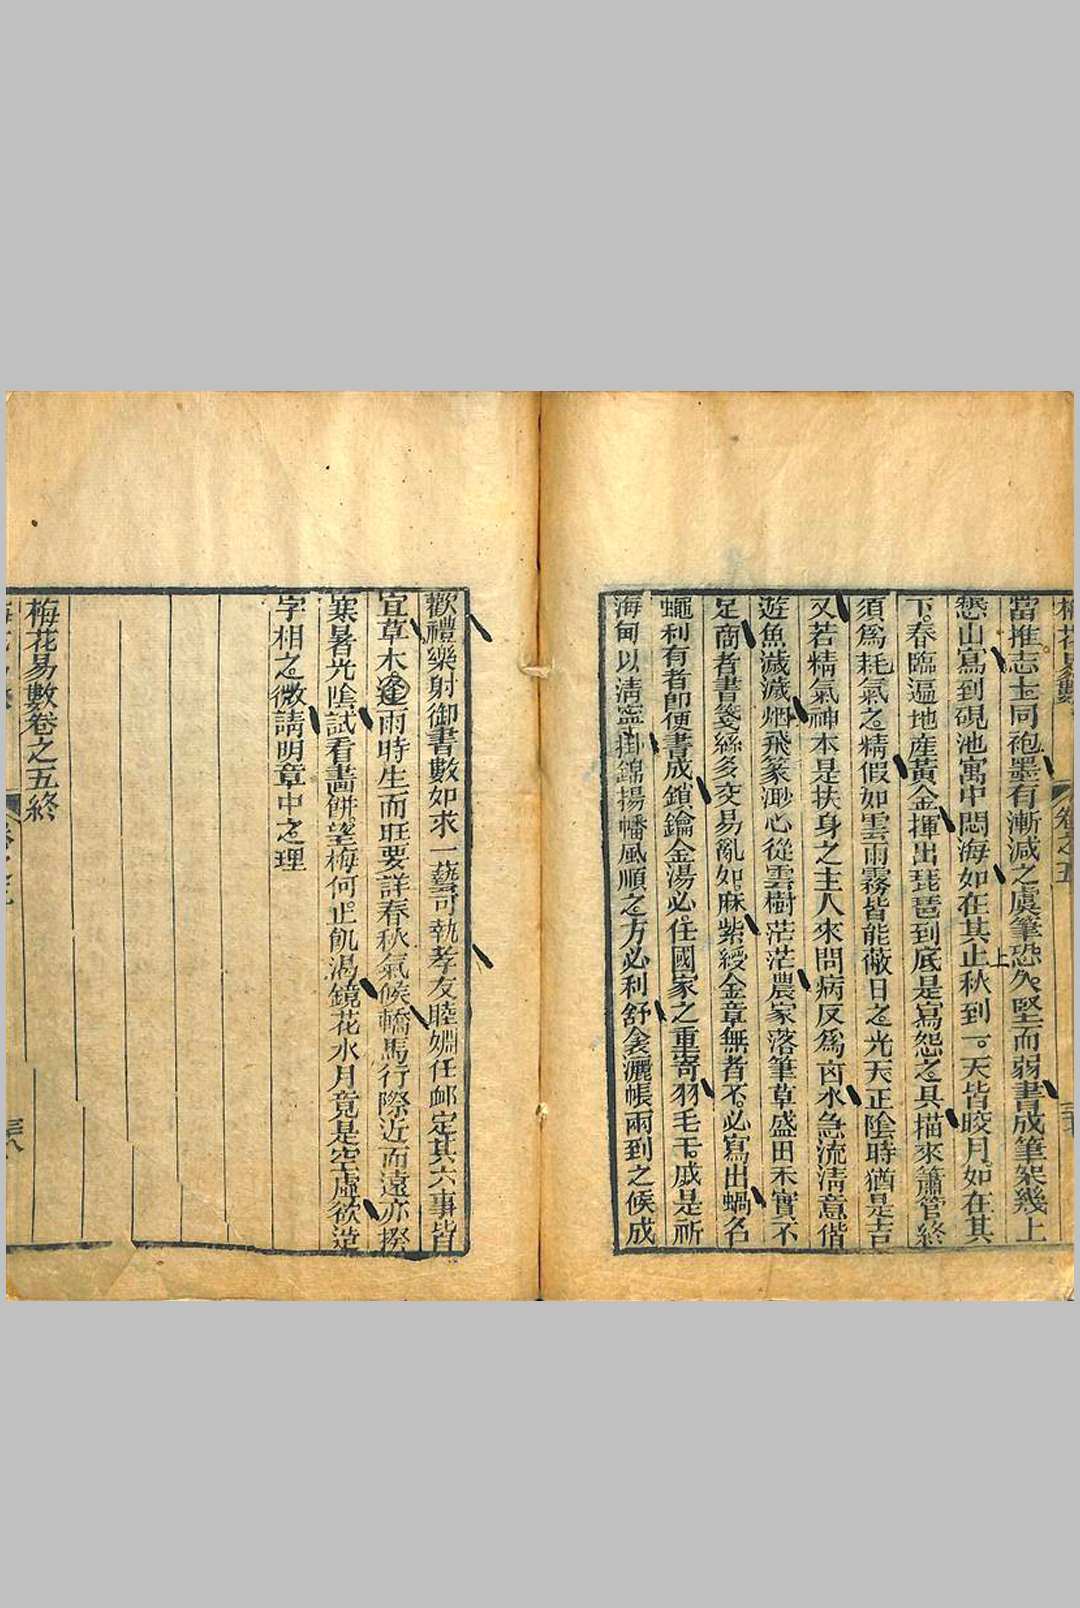 梅花易數 卷之五
當推志士同袍墨有漸減之虞筆恐久堅而弱書成筆架幾上
懸山寫到硯池寓中悶海如在其上秋到一天皆皎月如在其
下春臨遍地產黃金揮出琵琶到底是寫怨之具描來簫管終
須爲耗氣之精假如雲雨霧皆能蔽日之光天正陰時猶是吉
又若精氣神本是扶身之主人來問病反爲凶水急流淸意偕
遊魚濊濊烟飛篆渺心從雲樹茫茫農家落筆草盛田禾實不
足商者書箋絲多交易亂如麻紫綬金章無者不必寫出蝸名
蠅利有者卽便書成鎖鑰金湯必任國家之重寄羽毛干戚是祈
海甸以淸寧掛錦揚幡風順之方必利舒衾灑帳雨到之候成
歡禮樂射御書數如求一藝可執孝友睦婣任䘏定其六事皆
宜草木逢雨時生而旺要詳春秋氣候轎馬行際近而遠亦揆
寒暑光陰試看畫餅望梅何止飢渴鏡花水月竟是空虛欲造
字相之微請明章中之理
梅花易數卷之五終
三八